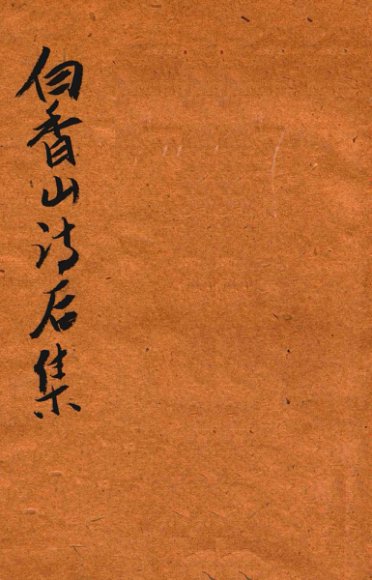 白香山诗后集